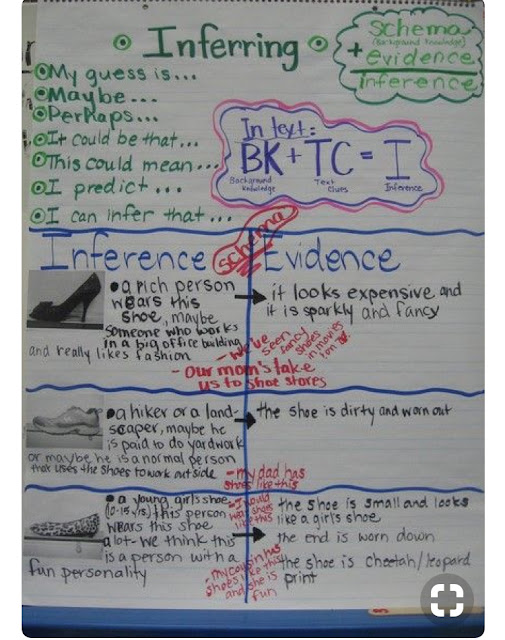 Inferring
Schema
(Background Knowledge)
+ Evidence
Inference
My guess is...
Maybe...
Perhaps...
It could be that...
This could mean...
I predict...
I can infer that...
In text:
BK + TC = I
Background Knowledge
Text Clues
Inference
Inference
Schema
Evidence
a rich person
wears this
shoe, maybe
someone who works
in a big office building
and really likes fashion
it looks expensive and
it is sparkly and fancy
- We've
seen
fancy
shoes
in movies
- our mom's take
us to shoe stores
a hiker or a land-
scaper, maybe he
is paid to do yardwork
or maybe he is a normal person
that uses the shoes to work outside
the shoe is dirty and worn out
- my dad has
shoes like this
a young girl's shoe
this person
wears this shoe
a lot - we think this
is a person with a
fun personality
- I would
shoes
like this
the shoe is small and looks
like a girl's shoe
the end is worn down
the shoe is cheetah/leopard
print
- my cousin has
shoes like this
and she is
fun